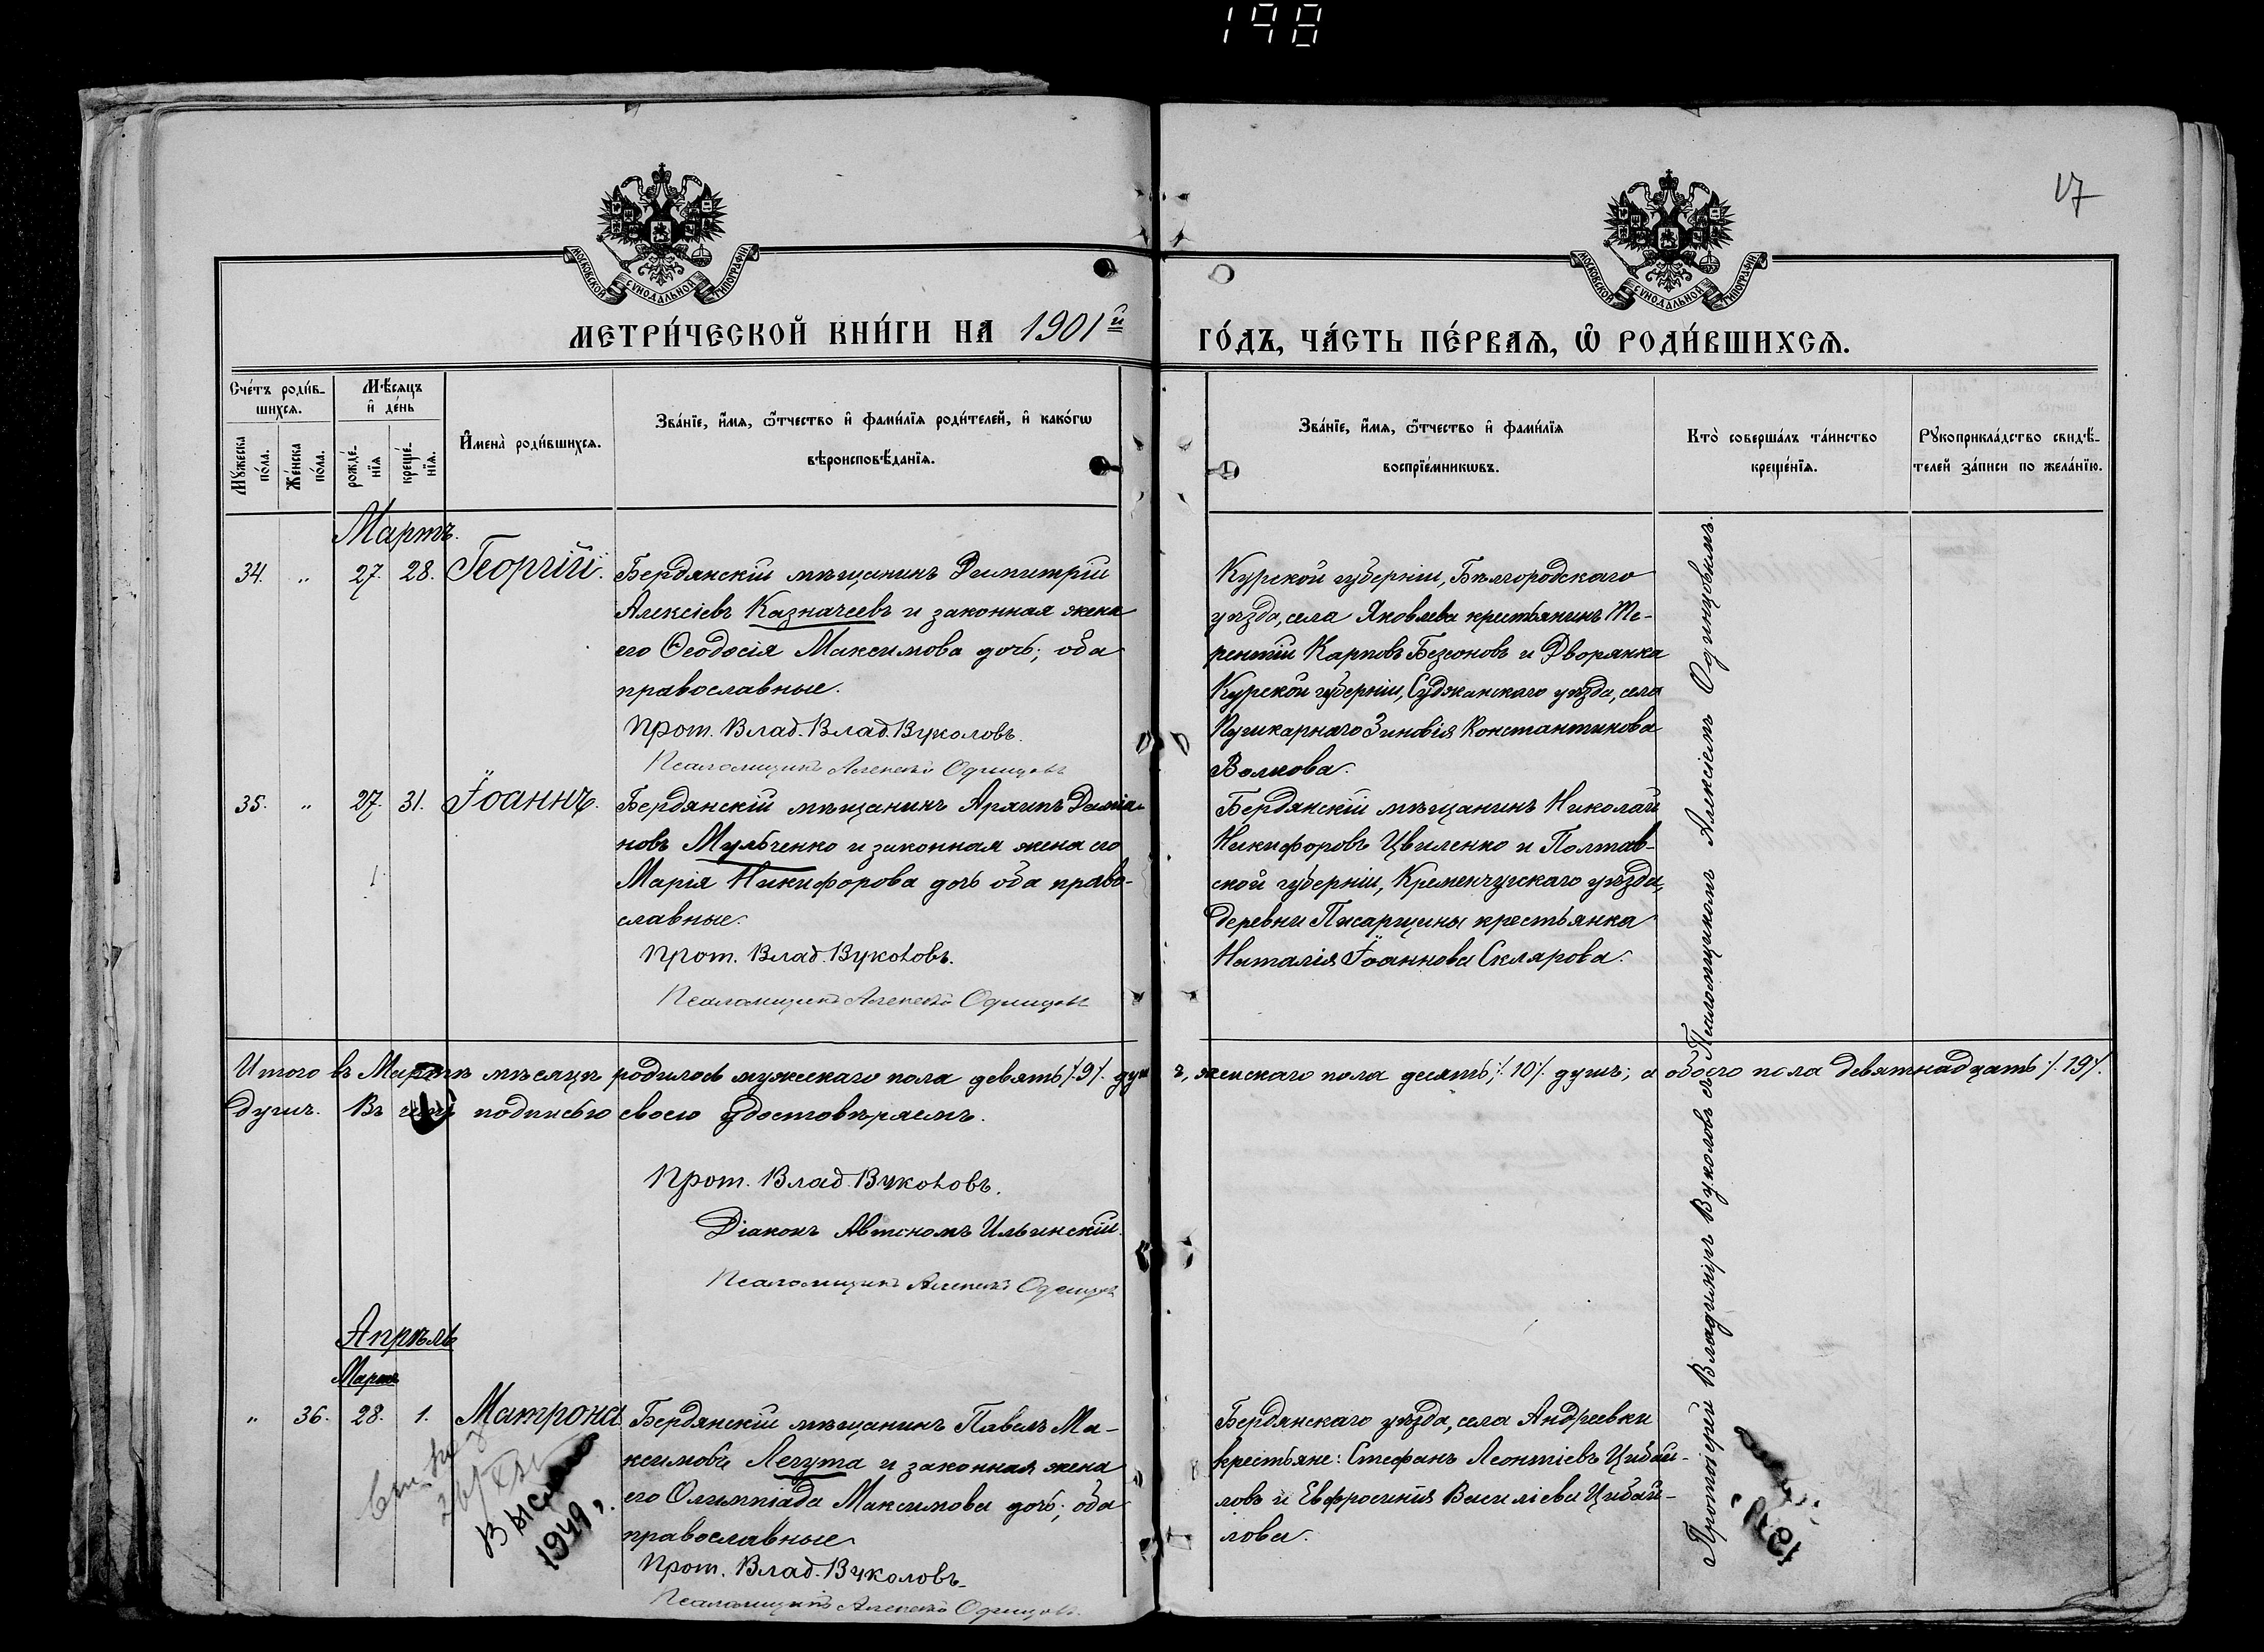 198
17
МОСКОВСКОЙ СѴНОДАЛЬНОЙ ТИПОГРАФІИ
МОСКОВСКОЙ СѴНОДАЛЬНОЙ ТИПОГРАФІИ
МЕТРИ́ЧЕСКОЙ КНИ́ГИ НА 1901й ГО́ДЪ, ЧА́СТЬ ПЕ́РВАѦ, Ѡ҆ РОДИ́ВШИХСѦ.
Сче́тъ роди́в-
шихсѧ.
Мꙋжеска по́ла.
Же́нска по́ла.
Мѣ́сѧцъ
и҆ де́нь
рожде́-
нїѧ
креще́-
нїѧ.
И҆мена̀ роди́вшихсѧ.
Зва́нїе, и҆́мѧ, ѻ҆́тчество и҆ фами́лїѧ роди́телей, и҆ како́гѡ
вѣроисповѣ́данїѧ.
Зва́нїе, и҆́мѧ, ѻ҆́тчество и҆ фами́лїѧ
воспрїе́мникѡвъ.
Кто̀ соверша́лъ та́инство
креще́нїѧ.
Рꙋкоприкла́дство свидѣ́-
телей за́писи по жела́нїю.
Мартъ.
34. „ 27. 28. Георгій.
Бердянскій мѣщанинъ Димитрій
Алексіевъ Казначеевъ и законная жена
его Ѳеодосія Максимова дочь; оба
православные.
Прот. Влад. Влад. Вуколовъ.
Псаломщикъ Алексѣй Одинцовъ
Курской губерніи, Бѣлгородскаго
уѣзда, села Яковлева крестьянинъ Те-
рентій Карповъ Безсоновъ и Дворянка
Курской губерніи, Суджанскаго уѣзда, села
Пушкарнаго Зиновія Константинова
Волкова.
35. „ 27. 31. Іоаннъ.
Бердянскій мѣщанинъ Архипъ Даміа-
новъ Мульченко и законная жена его
Марія Никифорова дочь оба право-
славные.
Прот. Влад. Вуколовъ.
Псаломщикъ Алексѣй Одинцовъ
Бердянскій мѣщанинъ Николай
Никифоровъ Цвиленко и Полтав-
ской губерніи, Кременчугскаго уѣзда,
деревни Писарщины крестьянка
Наталія Іоаннова Склярова.
Итого въ Мартѣ мѣсяцѣ родилось мужескаго пола девять /.9/. душъ, женскаго пола десять; /.10/. душъ; а обоего пола девятнадцать /.19/.
душъ. Въ чемъ подписью своею удостовѣряемъ.
Прот. Влад. Вуколовъ.
Діаконъ Автономъ Ильинскій.
Псаломщикъ Алексѣй Одинцовъ
Апрѣль
Мартъ
„ 36. 28. 1. Матрона
Бердянскій мѣщанинъ Павелъ Ма-
ксимовъ Легута и законная жена
его Олимпіада Максимова дочь; оба
православные.
Прот. Влад. Вуколовъ.
Псаломщикъ Алексѣй Одинцовъ.
1949
Бердянскаго уѣзда, села Андреевки
крестьяне: Стефанъ Леонтіевъ Цибай-
ловъ и Евфросинія Василіева Цибай-
лова.
Протоіерей Владиміръ Вуколовъ съ Псаломщикомъ Алексіемъ Одинцовымъ.